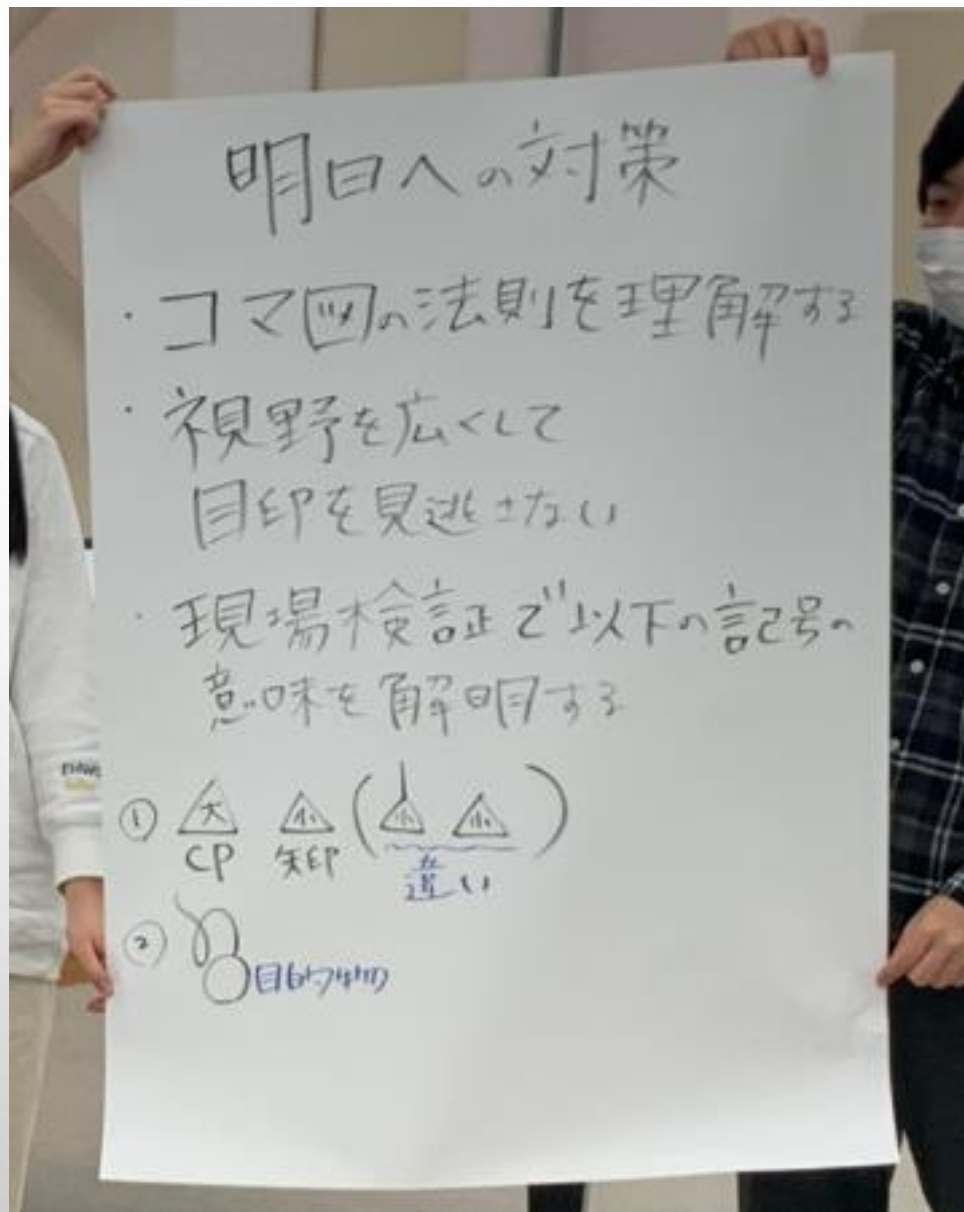 明日への対策
・コマ図の法則を理解する
・視野を広くして
目印を見逃さない
・現場検証で以下の記号の
意味を解明する
① 大 小 ( 小 小 )
CP 矢印 違い
② 目的